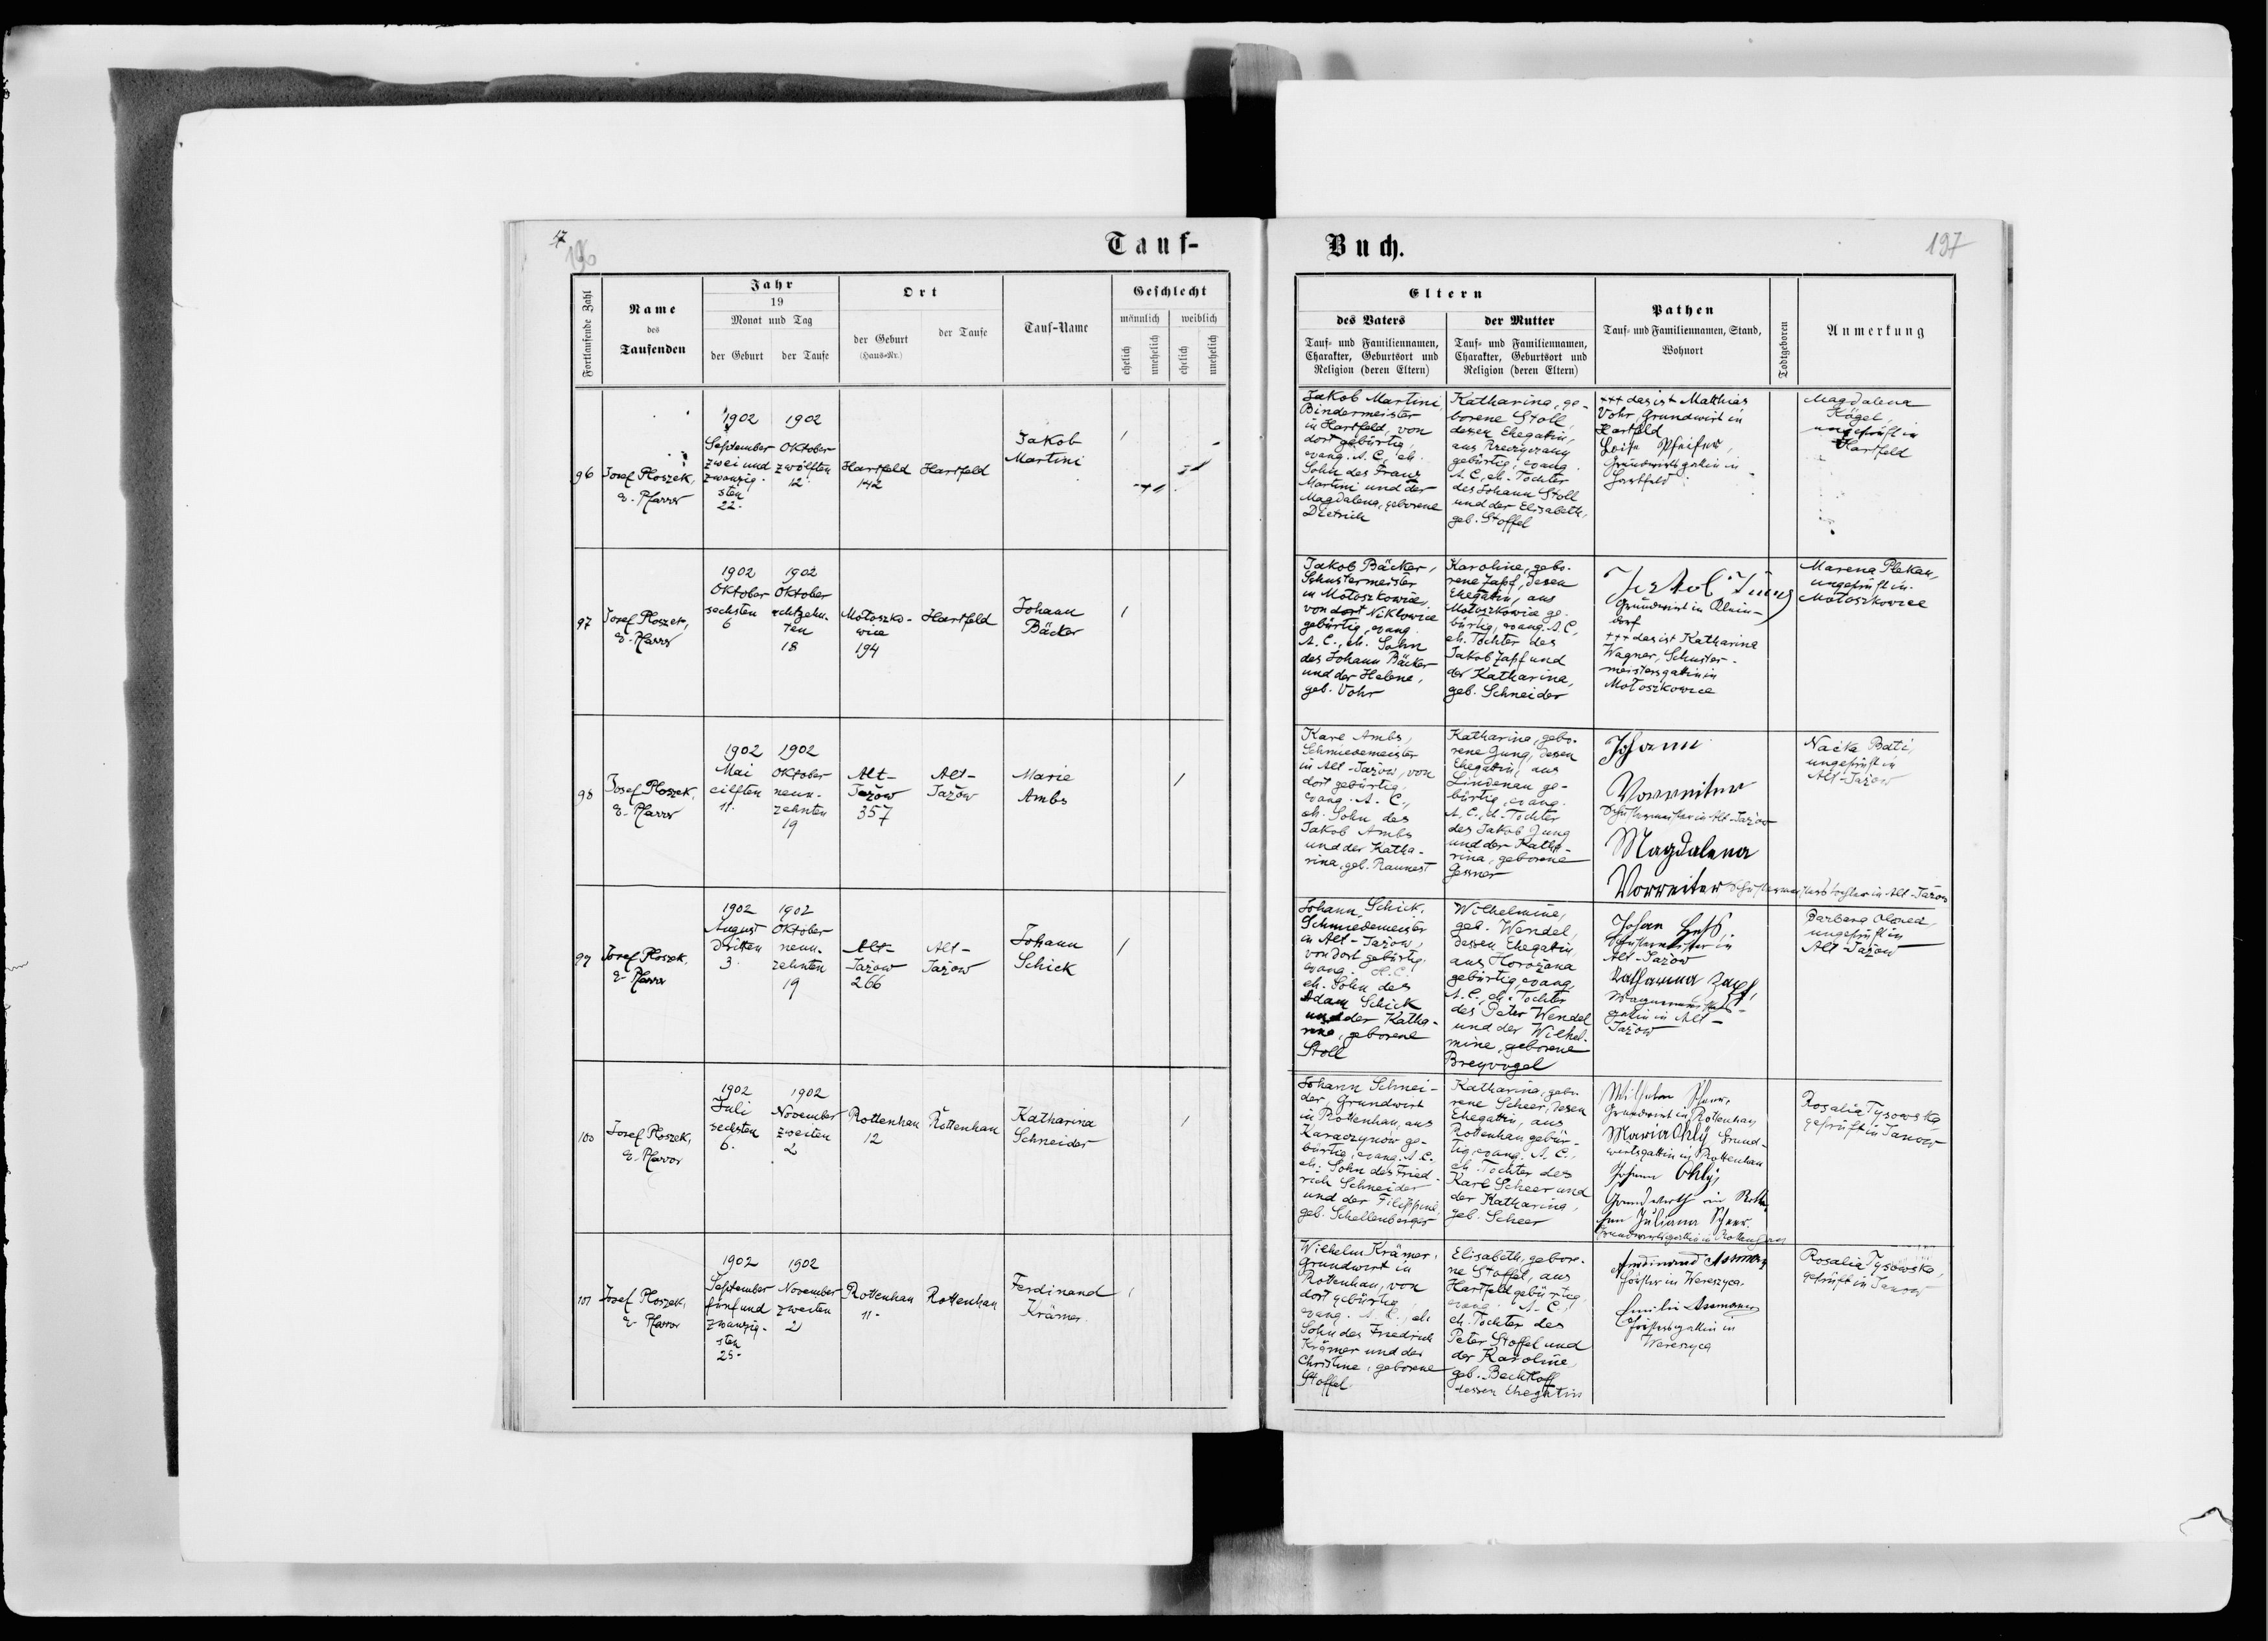 196
Tauf-
Fortlaufende Zahl
Name
des
Taufenden
Jahr
19
Monat und Tag
der Geburt
der Taufe
Ort
der Geburt
(Haus-Nr.)
der Taufe
Tauf-Name
Geschlecht
männlich
weiblich
ehelich
unehelich
ehelich
unehelich
96
Josef Ploszek,
e. Pfarrer
1902
September
zwei und
zwanzig-
sten
22.
1902
Oktober
zwölften
12.
Hartfeld
142
Hartfeld
Jakob
Martini
97
Josef Ploszek,
e. Pfarrer
1902
Oktober
sechsten
6
1902
Oktober
achtzehn-
ten
18
Mołoszko-
wice
194
Hartfeld
Johann
Bäcker
98
Josef Ploszek,
e. Pfarrer
1902
Mai
eilften
11.
1902
Oktober
neun-
zehnten
19
Alt-
Jażow
357
Alt-
Jażow
Marie
Ambs
99
Josef Ploszek,
e. Pfarrer
1902
August
dritten
3.
1902
Oktober
neun-
zehnten
19
Alt-
Jażow
266
Alt-
Jażow
Johann
Schick
100
Josef Ploszek,
e. Pfarrer
1902
Juli
sechsten
6.
1902
November
zweiten
2
Rottenhan
12
Rottenhan
Katharina
Schneider
101
Josef Ploszek,
e. Pfarrer
1902
September
fünf und
zwanzig-
sten
25.
1902
November
zweiten
2
Rottenhan
11.
Rottenhan
Ferdinand
Krämer
Buch.
197
Eltern
des Vaters
Tauf- und Familiennamen,
Charakter, Geburtsort und
Religion (deren Eltern)
der Mutter
Tauf- und Familiennamen,
Charakter, Geburtsort und
Religion (deren Eltern)
Pathen
Tauf- und Familiennamen, Stand,
Wohnort
Todtgeboren
Anmerkung
Jakob Martini,
Bindermeister
in Hartfeld, von
dort gebürtig,
evang. A. C., eh.
Sohn des Franz
Martini und der
Magdalena, geborene
Dietrich
Katharina, ge-
borene Stoll,
dessen Ehegattin,
aus
gebürtig, evang.
A. C., eh. Tochter
des Johann Stoll
und der Elisabeth,
geb. Stoffel
+++ das ist Matthias
Vohr, Grundwirt in
Hartfeld
Luise Pfeifer,
Grundwirtsgattin in
Hartfeld
Magdalena
Kögel,
ungeprüft in
Hartfeld
Jakob Bäcker,
Schustermeister
in Mołoszkowice,
von dort Niklowice
gebürtig, evang.
A. C., eh. Sohn
des Johann Bäcker
und der Helene,
geb. Vohr
Karoline, gebo-
rene Zapf, dessen
Ehegattin, aus
Mołoszkowice ge-
bürtig, evang. A. C.,
eh. Tochter des
Jakob Zapf und
der Katharina,
geb. Schneider
Jakob Jung
Grundwirt in Klein-
dorf
+++ das ist Katharina
Wagner, Schuster-
meistersgattin in
Mołoszkowice
Marena Plekan,
ungeprüft in
Mołoszkowice
Karl Ambs,
Schmiedemeister
in Alt-Jażow, von
dort gebürtig,
evang. A. C.,
eh. Sohn des
Jakob Ambs
und der Katha-
rina, geb. Raunest
Katharina, gebo-
rene Jung, dessen
Ehegattin, aus
Lindenau ge-
bürtig, evang.
A. C., eh. Tochter
des Jakob Jung
und der Katha-
rina, geborene
Gesner
Johann
Vorreiter
Schustermeister in Alt-Jażow
Magdalena
Vorreiter Schustermeisterstochter in Alt-Jażow
Naćka Bati,
ungeprüft in
Alt-Jażow
Johann Schick,
Schmiedemeister
in Alt-Jażow,
von dort gebürtig,
evang. A. C.
eh. Sohn des
Adam Schick
und der Katha-
rina, geborene
Stoll
Wilhelmine,
geb. Wendel,
dessen Ehegattin,
aus Horożana
gebürtig, evang.
A. C., eh. Tochter
des Peter Wendel
und der Wilhel-
mine, geborene
Breyvogel
Johan Hess,
Schustermeister in
Alt-Jażow
Katharina Zapf,
Wagnermeisters-
gattin in Alt-
Jażow
Barbara
ungeprüft in
Alt-Jażow
Johann Schnei-
der, Grundwirt
in Rottenhan, aus
Karaczynów ge-
bürtig, evang. A. C.
eh. Sohn des Fried-
rich Schneider
und der Filippine,
geb. Schellenberger
Katharina, gebo-
rene Scheer, dessen
Ehegattin, aus
Rottenhan gebür-
tig, evang. A. C.,
eh. Tochter des
Karl Scheer und
der Katharina,
geb. Scheer
Wilhelm Scheer,
Grundwirt in Rottenhan
Maria Ohly, Grund-
wirtsgattin in Rottenhan
Johann Ohly,
Grundwirth in Rotten
han Juliana Scheer
Grundwirtsgattin in Rottenhan
Rosalia Tysowska,
geprüft in Janow
Wilhelm Krämer,
Grundwirt in
Rottenhan, von
dort gebürtig,
evang. A. C., eh.
Sohn des Friedrich
Krämer und der
Christine, geborene
Stoffel
Elisabeth, gebor-
ne Stoffel, aus
Hartfeld gebürtig,
evang. A. C.,
eh. Tochter des
Peter Stoffel und
der Karoline,
geb. Bechtloff
dessen Ehegattin
Ferdinand Assmann
Förster in Wereszyca
Emilie Assmann
Förstersgattin in
Wereszyca
Rosalia Tysowska,
geprüft in Janow